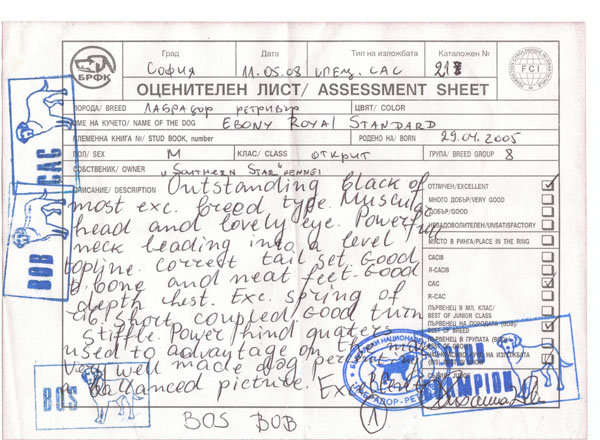 БРФК
Град Дата Тип на изложбата Каталожен №
София 11.05.08 специ. CAC 217
FCI
ОЦЕНИТЕЛЕН ЛИСТ/ ASSESSMENT SHEET
ПОРОДА/ BREED Лабрадор ретривър ЦВЯТ/ COLOR
ИМЕ НА КУЧЕТО/ NAME OF THE DOG Ebony Royal Standard
ПЛЕМЕННА КНИГА №/ STUD BOOK, number РОДЕНО НА/ BORN 29.04.2005
ПОЛ/ SEX M КЛАС/ CLASS открит ГРУПА/ BREED GROUP 8
СОБСТВЕНИК/ OWNER "Southern Star"
ОПИСАНИЕ/ DESCRIPTION Outstanding black of
most exc. breed type. Muscular
head and lovely eye. Powerful
neck leading into a level
topline. Correct tail set. Good
bone and neat feet. Good
depth chest. Exc. spring of
rib, short coupled, good turn
stifle. Power hind quaters
used to advantage on the
Very well made dog
a ballanced picture. Excellent
BOS BOB
1
ОТЛИЧЕН/EXCELLENT
МНОГО ДОБЪР/VERY GOOD
ДОБЪР/GOOD
УДОВЛЕТВОРИТЕЛЕН/UNSATISFACTORY
МЯСТО В РИНГА/PLACE IN THE RING
CACIB
R-CACIB
CAC
R-CAC
ПЪРВЕНЕЦ В МЛ. КЛАС/
BEST OF JUNIOR CLASS
ПЪРВЕНЕЦ НА ПОРОДАТА (BOB)/
BEST OF BREED
ПЪРВЕНЕЦ В ГРУПАТА
CAC
BOB
BOS
CLUB
CHAMPION